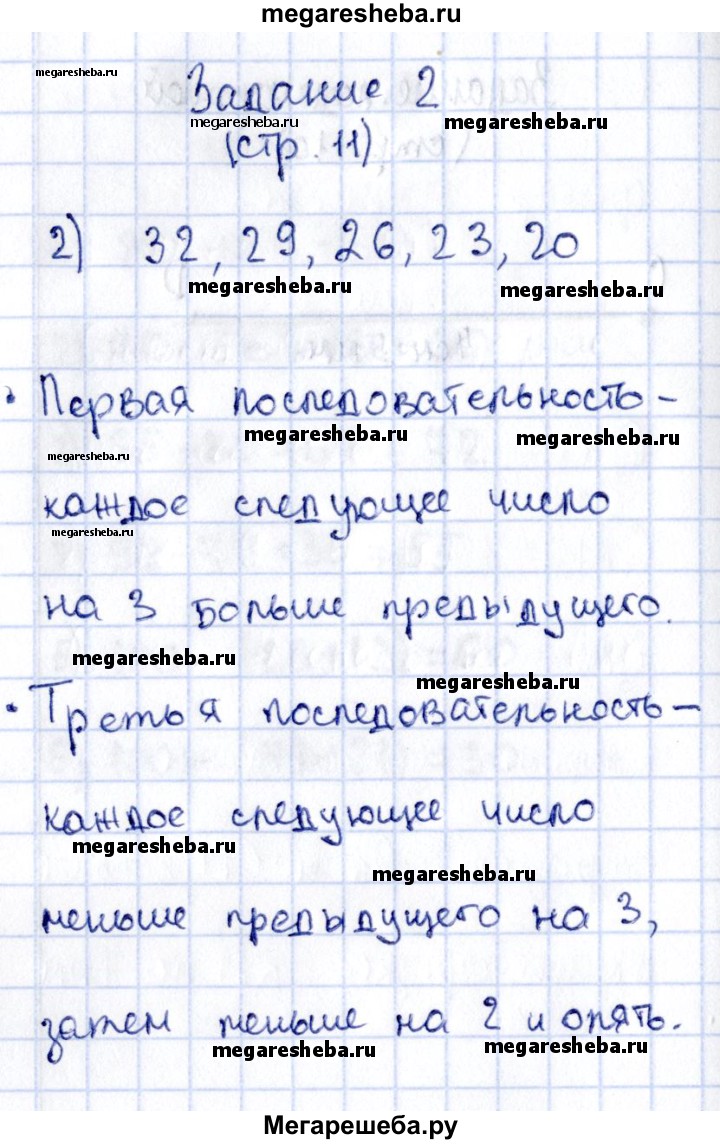 megaresheba.ru
megaresheba.ru
Задание 2
megaresheba.ru megaresheba.ru
(стр. 11)
2) 32, 29, 26, 23, 20
megaresheba.ru megaresheba.ru
• Первая последовательность -
megaresheba.ru megaresheba.ru
megaresheba.ru
каждое следующее число
megaresheba.ru
на 3 больше предыдущего.
megaresheba.ru megaresheba.ru
• Третья последовательность -
каждое следующее число
megaresheba.ru megaresheba.ru
меньше предыдущего на 3,
затем меньше на 2 и опять.
megaresheba.ru megaresheba.ru
Мегарешеба.ру